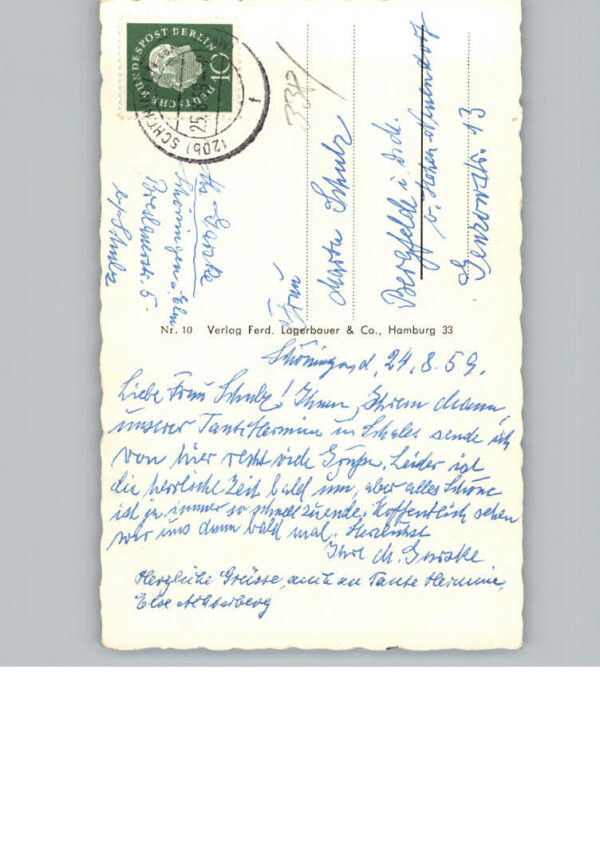 DEUTSCHE BUNDESPOST BERLIN
10
(20b) SCHÖNINGEN
25.
f
330
Frau
Marta Schulz
Bergfelde
b. Hohen Neuendorf
13
Schöningen a. Elm
Breslauerstr. 5
b/ Schulz
Nr. 10 Verlag Ferd. Lagerbauer & Co., Hamburg 33
Schöningen, d. 24.8.59.
Liebe Frau Schulz! Ihnen, Ihrem Mann,
unserer Tante Hermine u. sende ich
von hier recht viele Grüße. Leider ist
die herrliche Zeit bald um, aber alles Schöne
ist ja immer so schnell zuende. Hoffentlich sehen
wir uns dann bald mal. Herzlichst
Ihre M. Gerske
Herzliche Grüsse, auch an Tante Hermine,
Else Achterberg